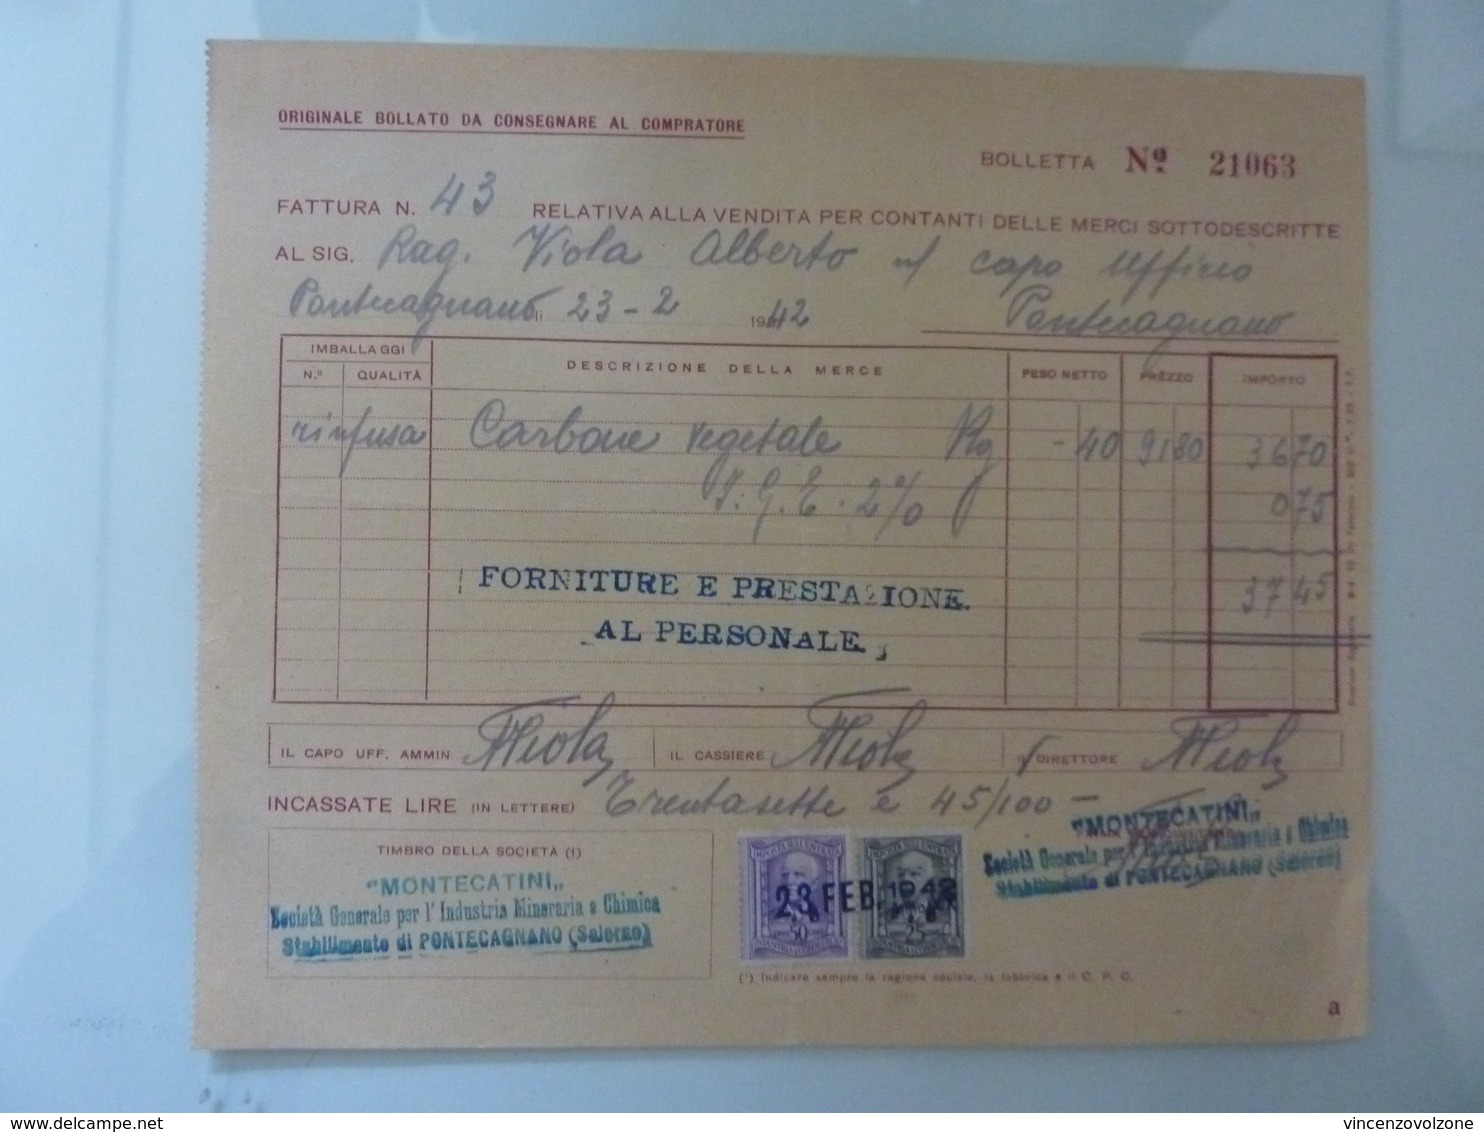 ORIGINALE BOLLATO DA CONSEGNARE AL COMPRATORE
BOLLETTA Nº 21063
FATTURA N. 43 RELATIVA ALLA VENDITA PER CONTANTI DELLE MERCI SOTTODESCRITTE
AL SIG. Rag. Viola Alberto n/ capo Ufficio
Pontecagnano li 23-2 1942 Pontecagnano
IMBALLAGGI DESCRIZIONE DELLA MERCE PESO NETTO PREZZO IMPORTO
N.º QUALITÀ
rinfusa Carbone vegetale Kg - 40 91 80 36 70
I.G.E. 2% 0 75
37 45
FORNITURE E PRESTAZIONE.
AL PERSONALE.
IL CAPO UFF. AMMIN. AViola IL CASSIERE AViola IL DIRETTORE AViola
INCASSATE LIRE (IN LETTERE) Trentasette e 45/100 —
"MONTECATINI"
Società Generale per l'Industria Mineraria e Chimica
Stabilimento di PONTECAGNANO (Salerno)
TIMBRO DELLA SOCIETÀ (1)
"MONTECATINI"
Società Generale per l'Industria Mineraria e Chimica
Stabilimento di PONTECAGNANO (Salerno)
IMPOSTA SULL'ENTRATA IMPOSTA SULL'ENTRATA
23 FEB. 1942
50 25
(¹) Indicare sempre la ragione sociale, la fabbrica e il C. P. C.
a
delcampe.net
vincenzovolzone